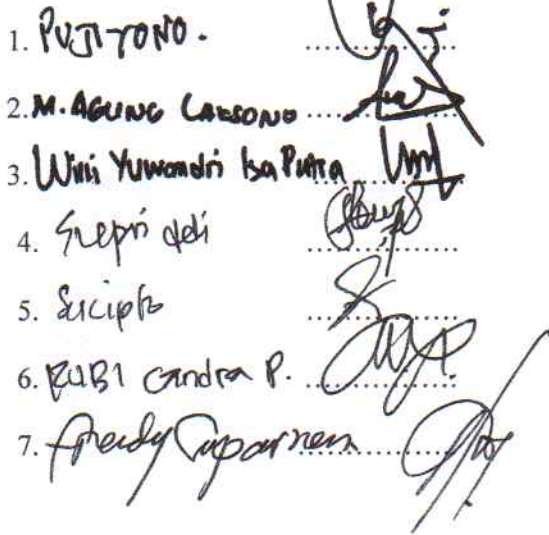 1. PUJIYONO.
2. M. AGUNG LAKSONO
3. Yuwandri Isa Putra
4. Adi
5. Sucipto
6. RUBI Candra P.
7. Suparman